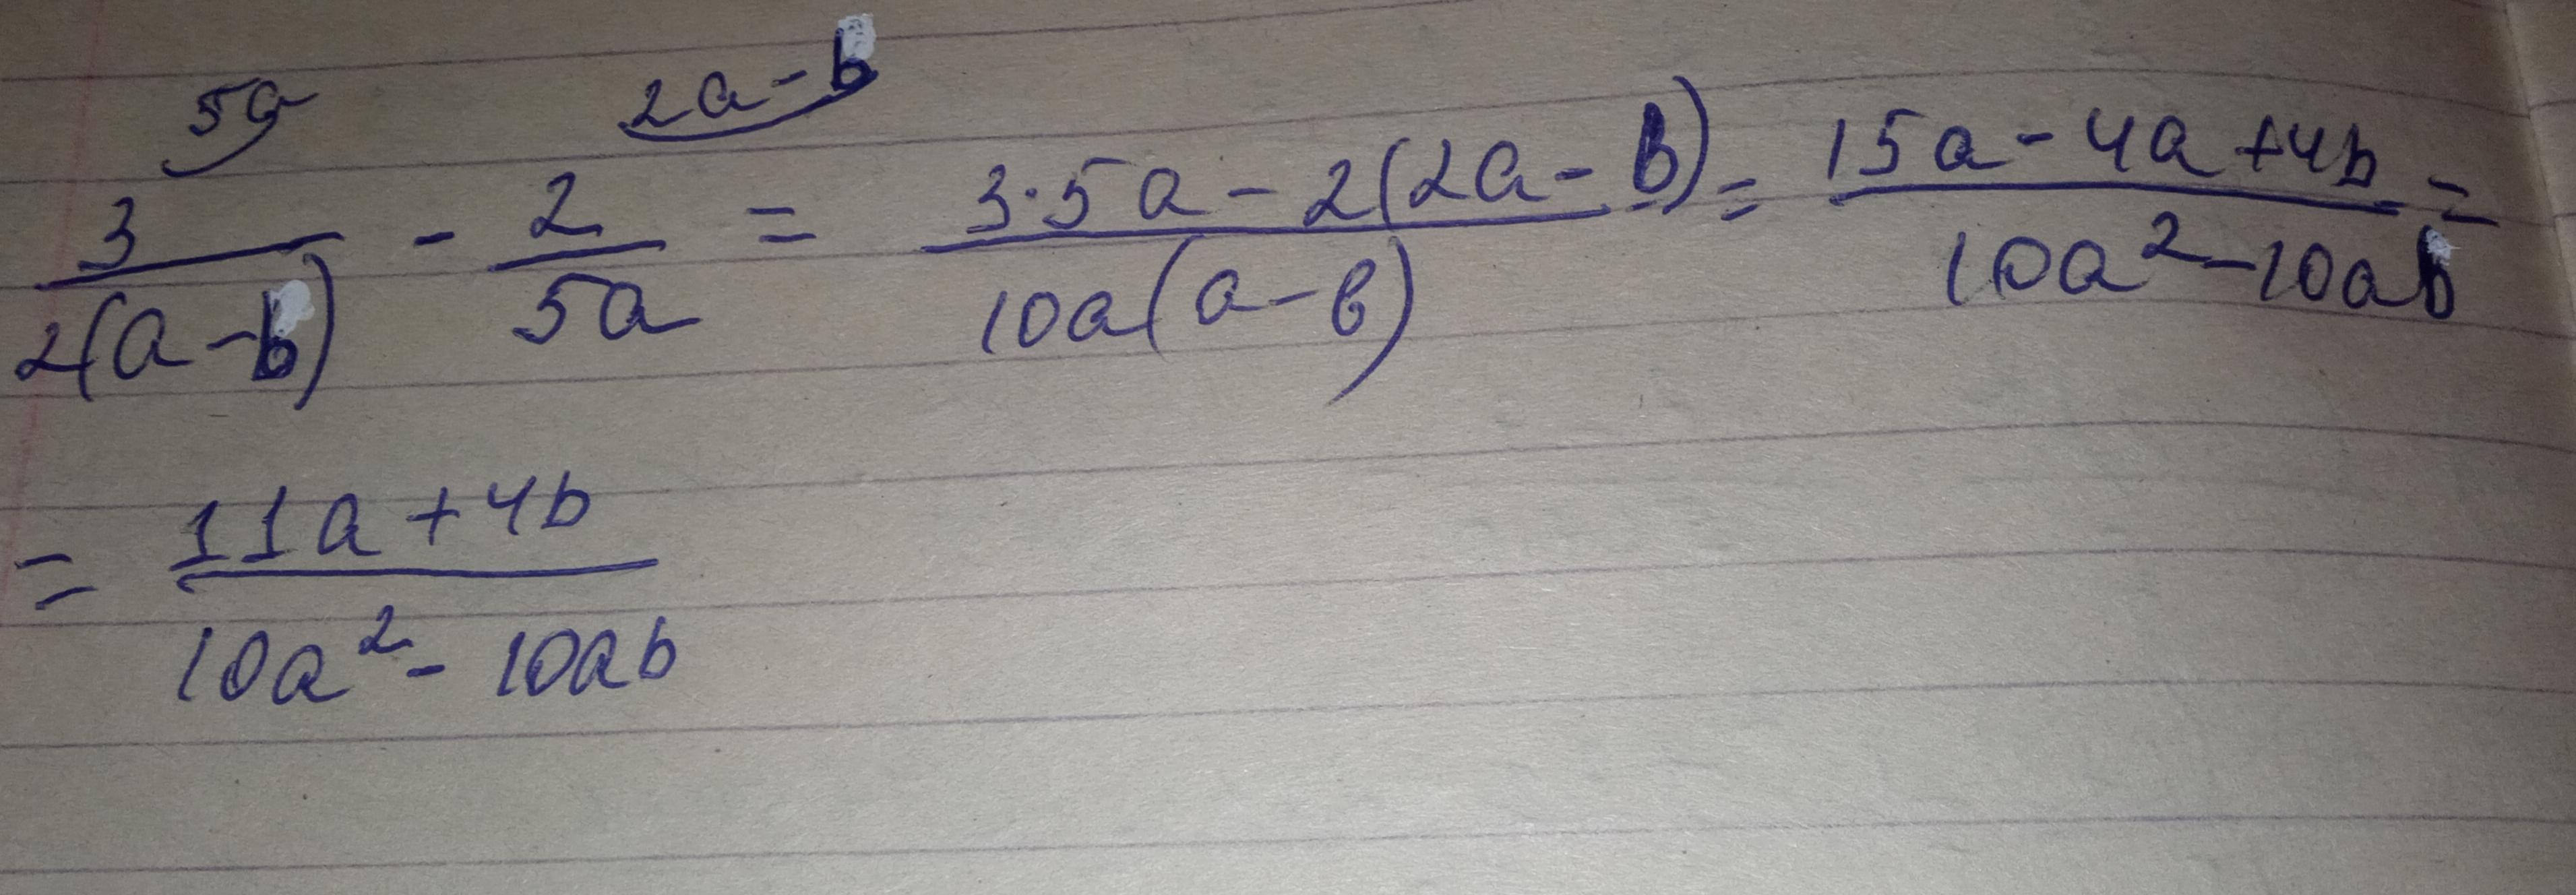 5a 2a-b
3/2(a-b) - 2/5a = 3·5a-2(2a-b)/10a(a-b) = 15a-4a+4b/10a²-10ab =
= 11a+4b/10a²-10ab